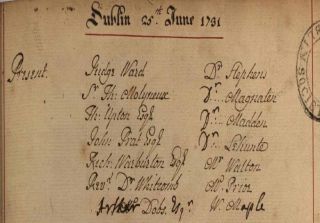 Dublin 25th June 1731
Present.
Judge Ward
Sr Th: Molyneux
Th: Upton Esqr
John Prat Esqr
Rich: Warburton Esqr
Revd Dr Whitcomb
Arthur Dobs. Esqr
Dr Stephens
Dr Magnaten
Dr Madden
Dr Lehunte
Mr Walton
Mr Prior
W. Maple